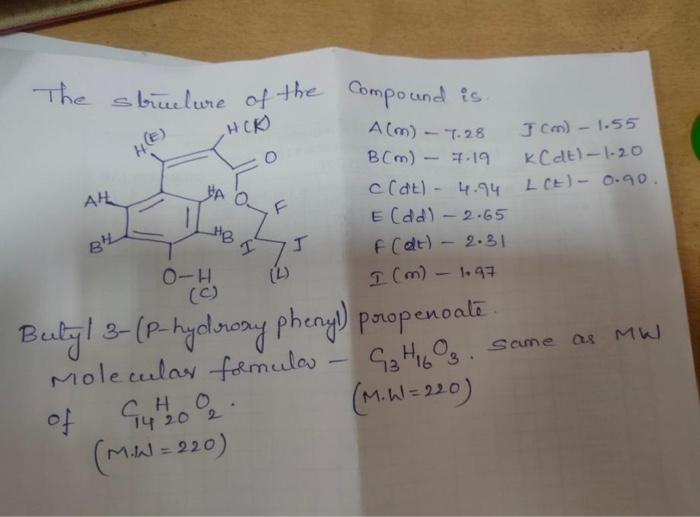 The structure of the Compound is.
A(m) - 7.28 J(m) - 1.55
B(m) - 7.19 K(dt) - 1.20
C(dt) - 4.94 L(t) - 0.90.
E(dd) - 2.65
F(dt) - 2.31
I(m) - 1.97
H(E)
H(K)
O
AH
HA
O
F
BH
HB
I
J
O-H
(C)
(L)
Butyl 3-(p-hydroxy phenyl) propenoate.
Molecular formula - C13H16O3. Same as MW
of C14H20O2. (M.W=220)
(M.W=220)